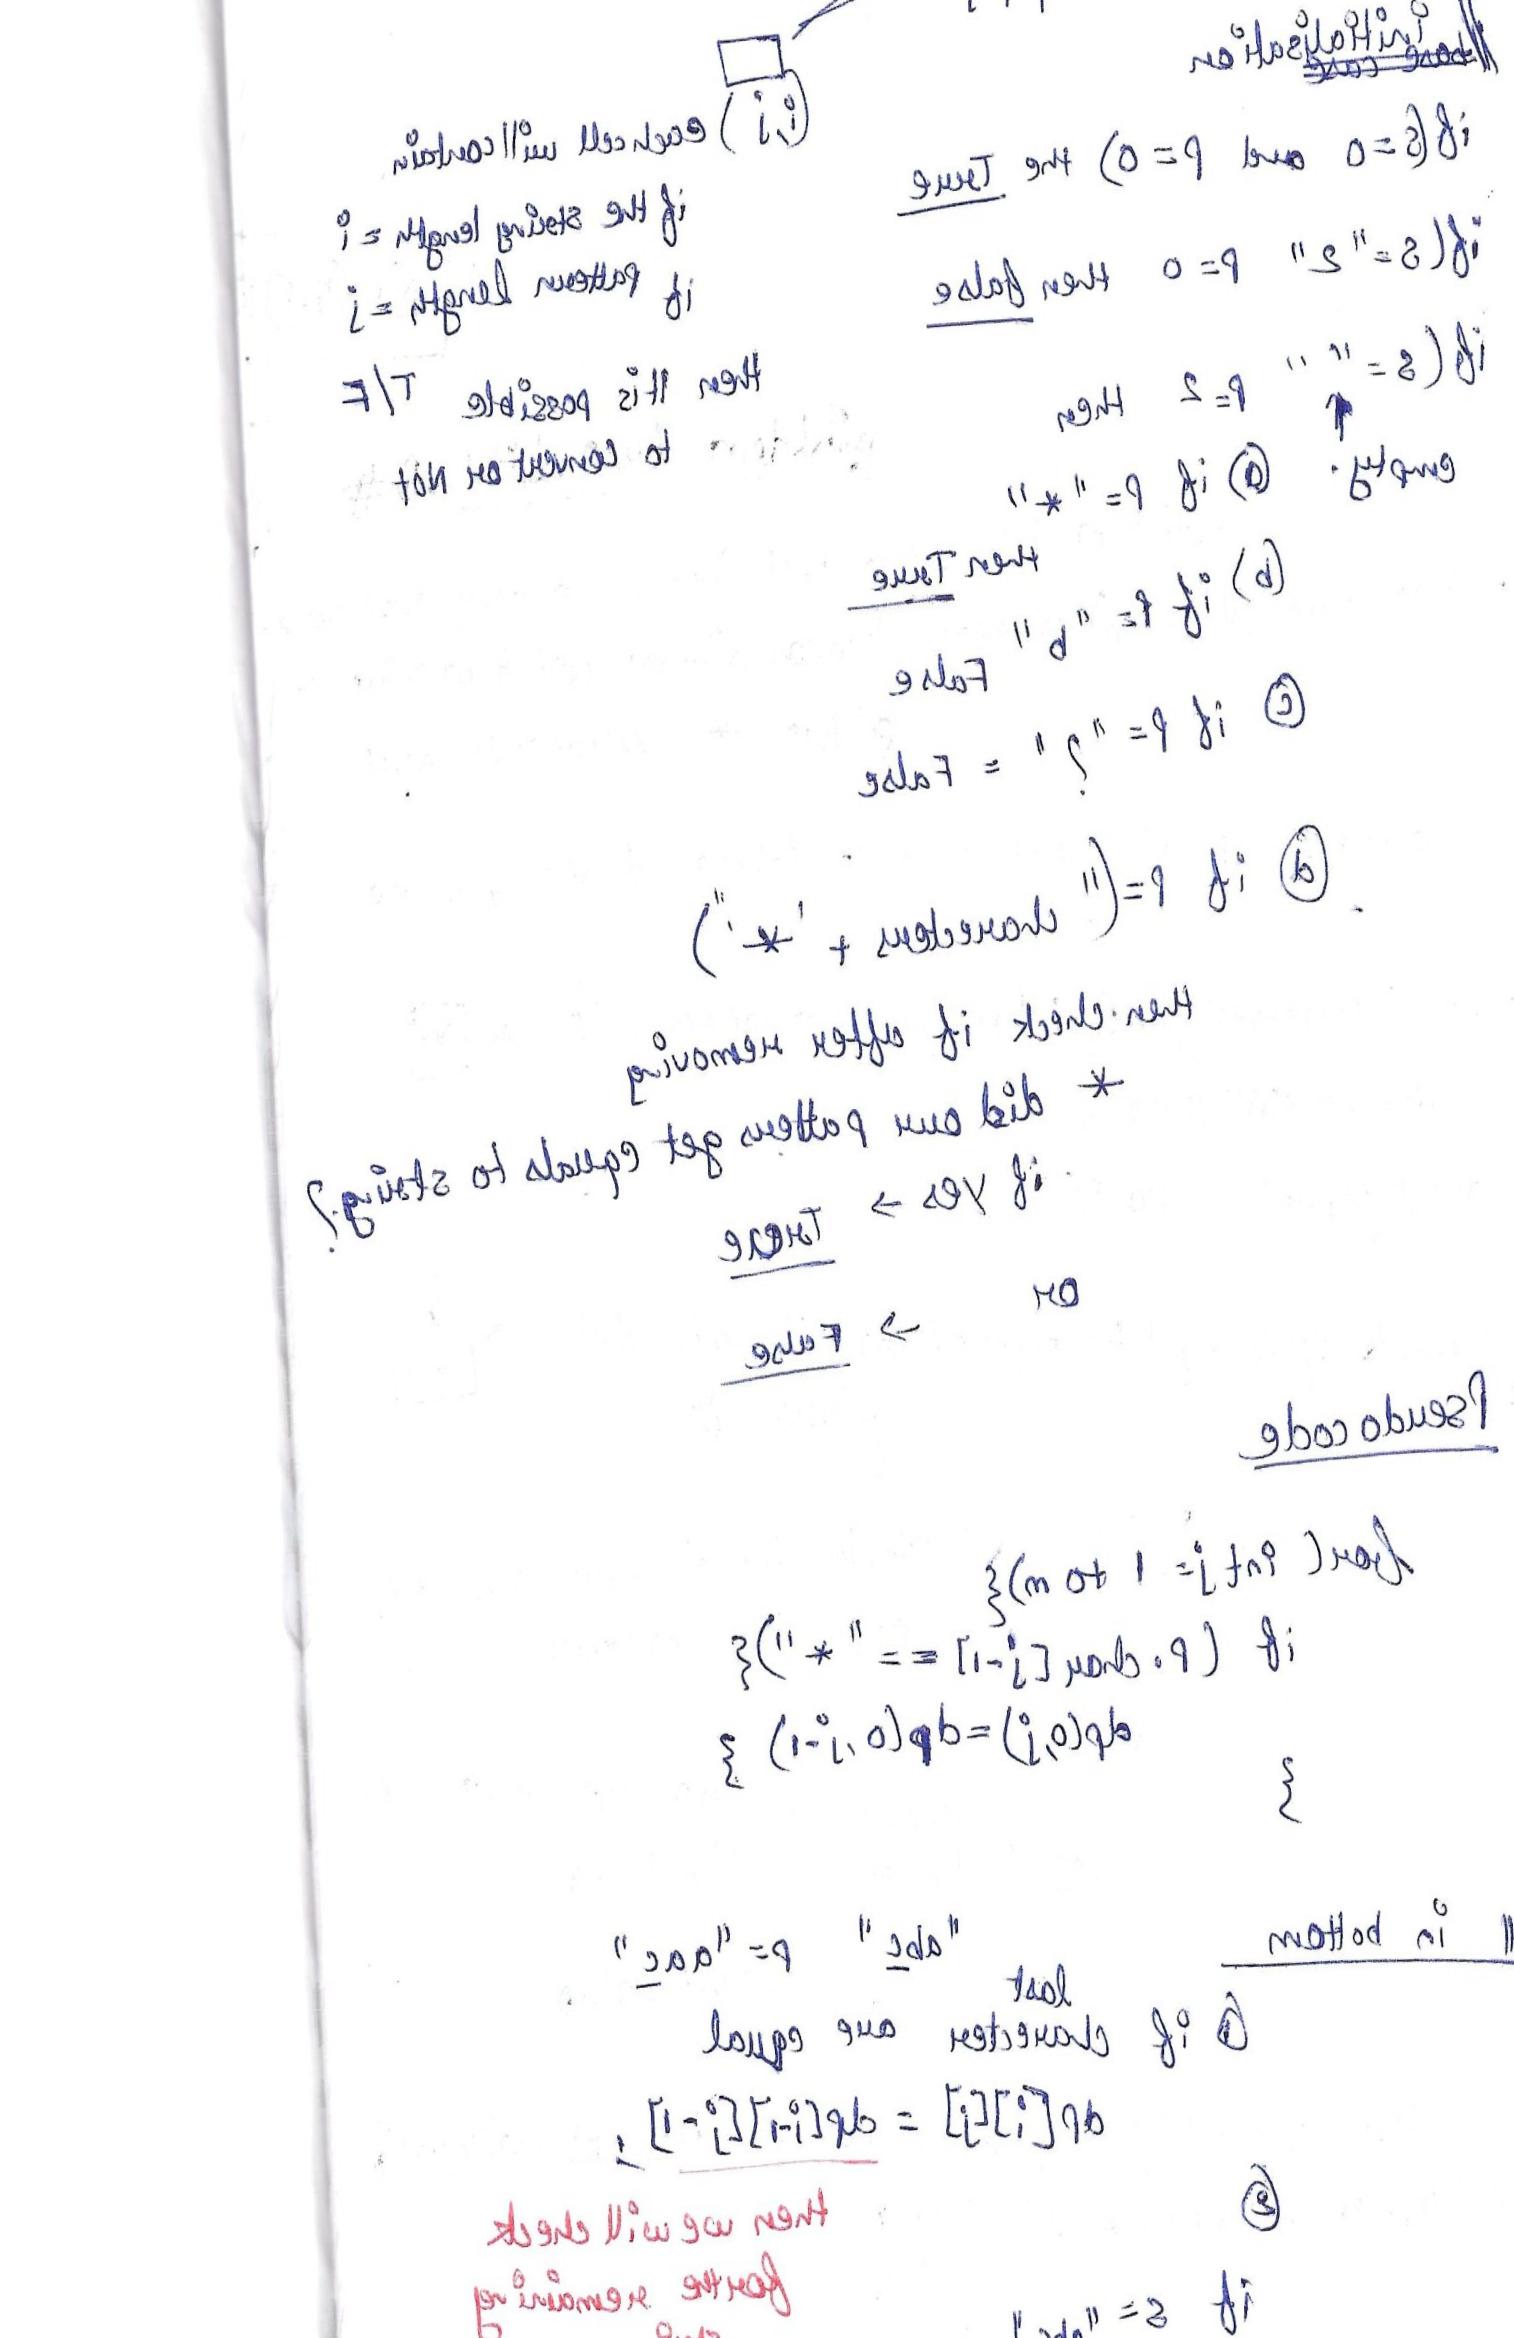 // initialisation
if (s=0 and p=0) the True
if (s="2" p=0 then false
if (s=" " p=2 then
empty.
(a) if p="*"
then True
(b) if p="b"
False
(c) if p="?" = False
(d) if p=("characters + '*'")
then check if after removing
* did our pattern get equals to string?
if Yes → True
or → False
(i,j) each cell will contain
if the string length = i
if pattern length = j
then it is possible T/F
to convert or Not
Pseudo code
for( int j= 1 to n){
if (p.char[j-1] == "*"){
dp(0,j) = dp(0,j-1) }
}
// in bottom
"abc" p="aac"
(1) if last character are equal
dp[i][j] = dp[i-1][j-1];
then we will check
for the remaining
(2)
if s= "abc"